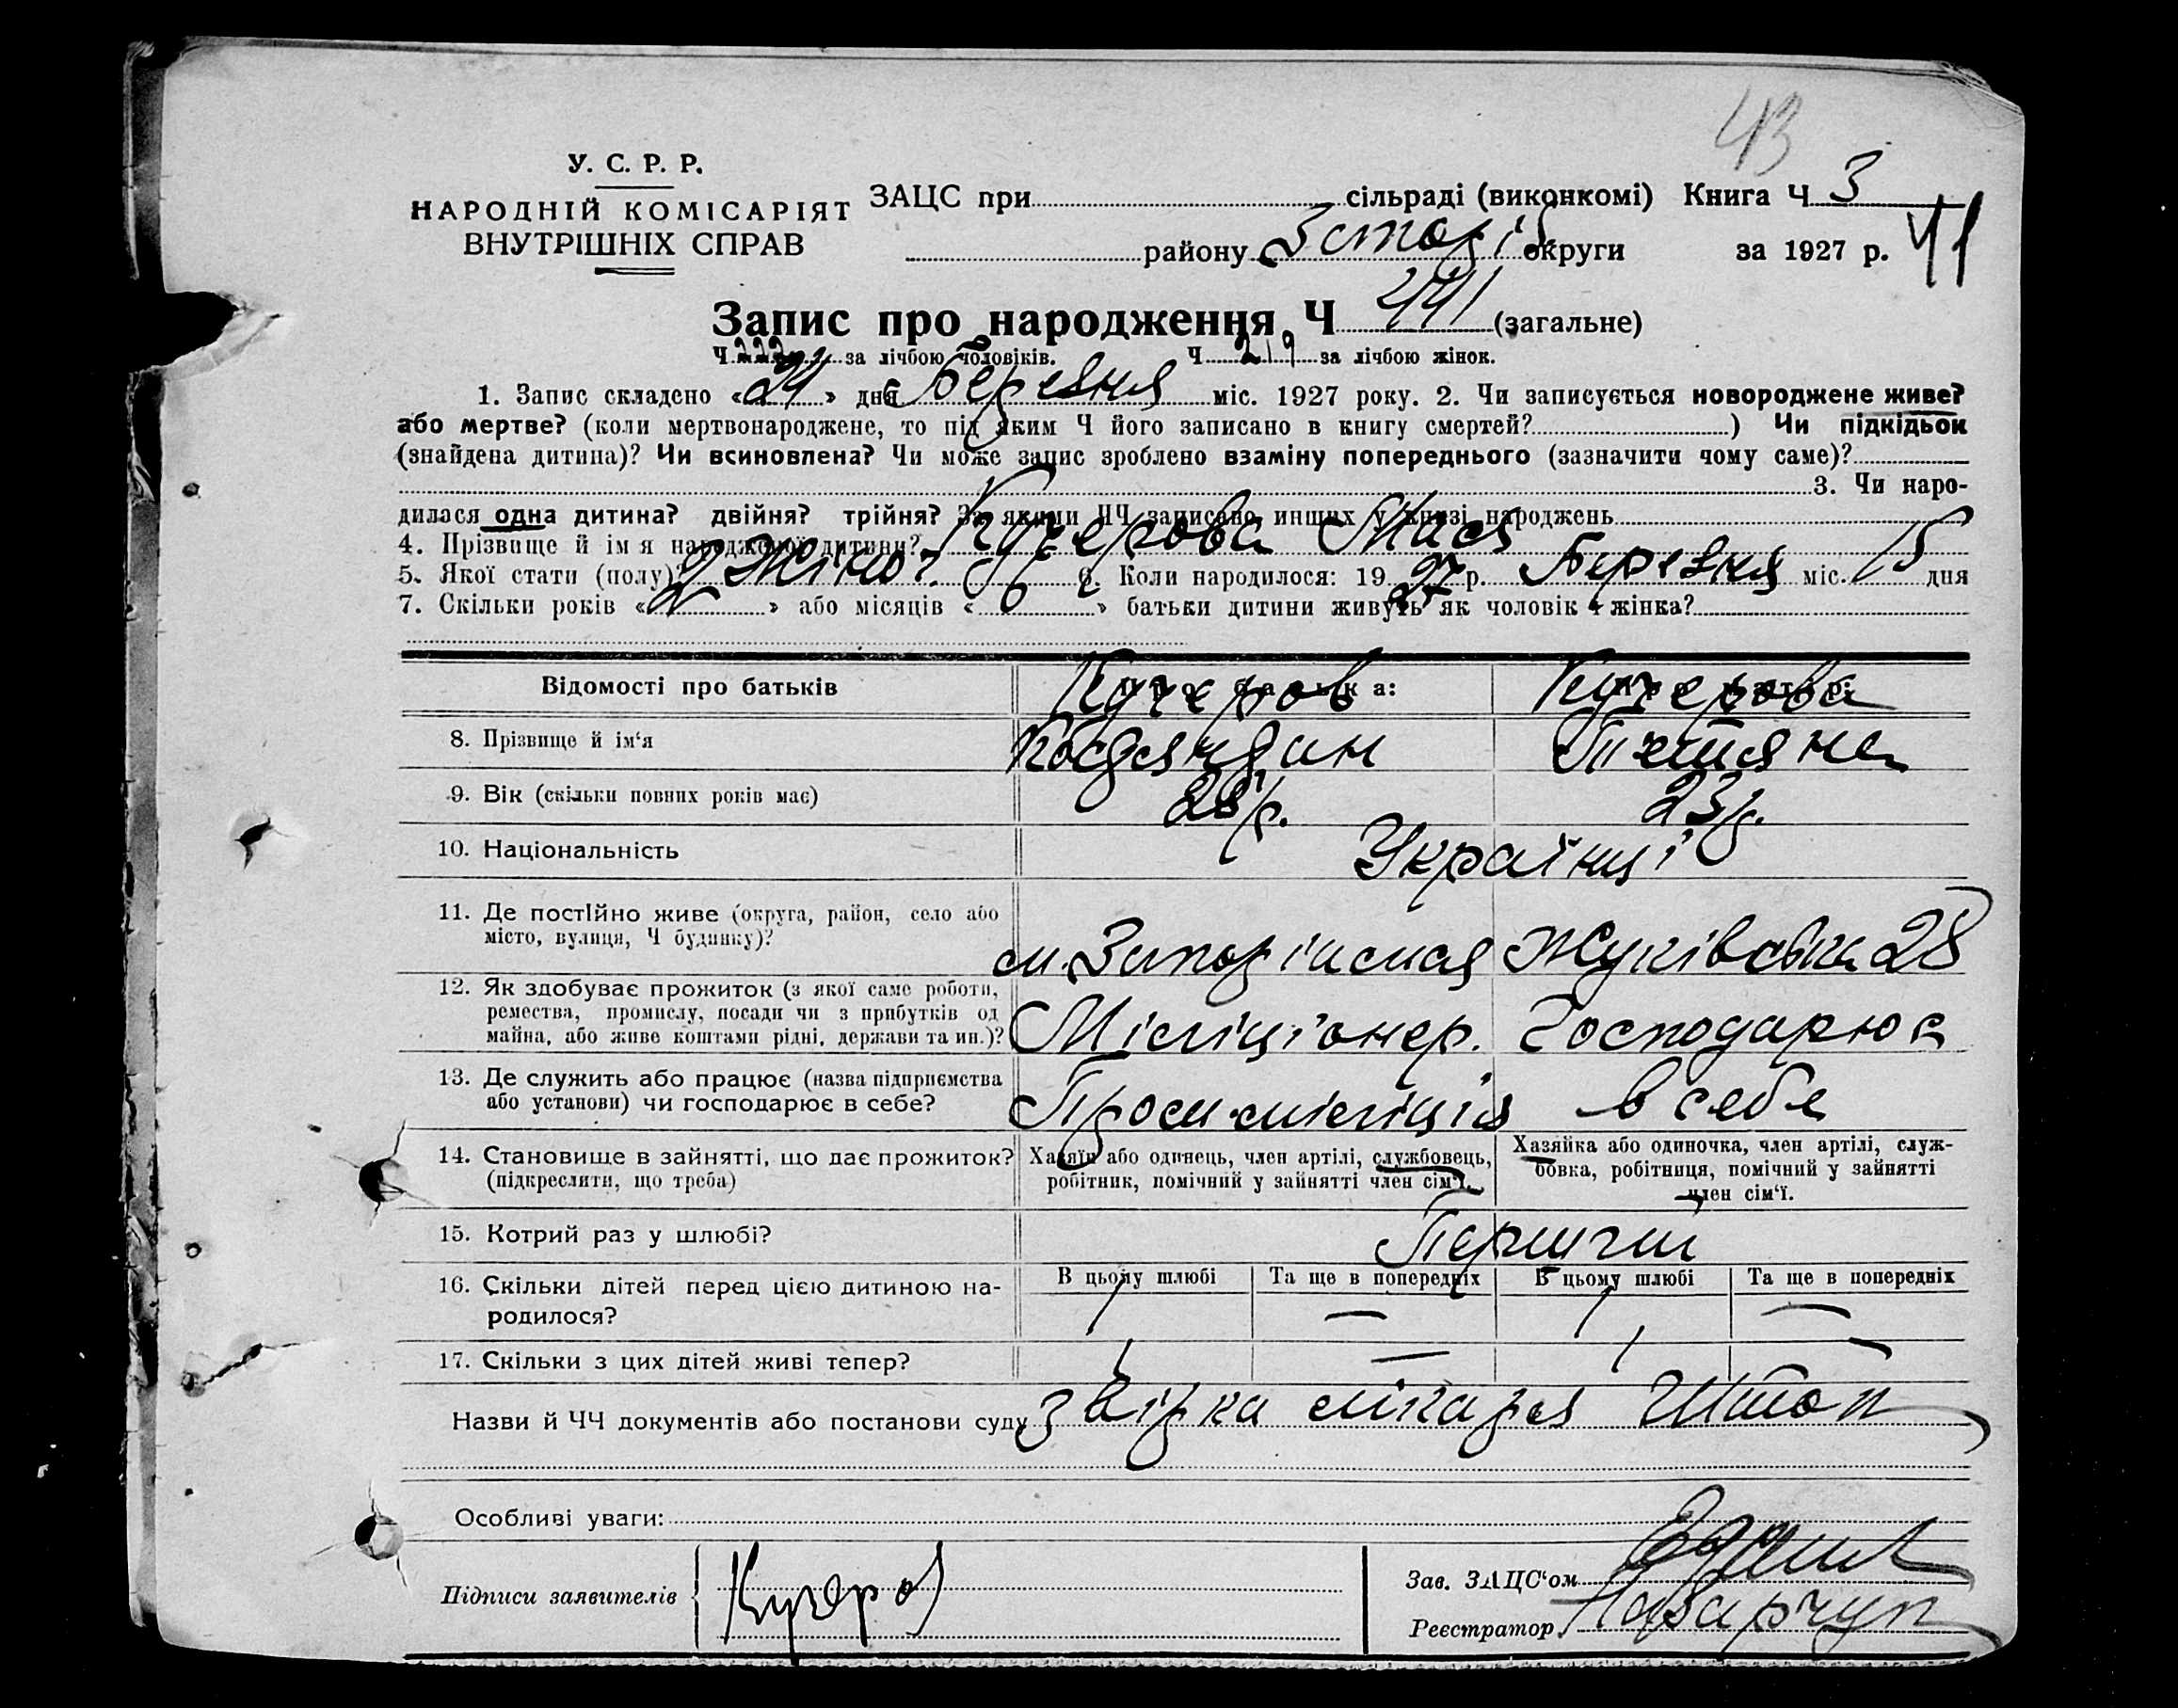 43
У. С. Р. Р.
НАРОДНІЙ КОМІСАРІЯТ
ВНУТРІШНІХ СПРАВ
ЗАЦС при сільраді (виконкомі) Книга Ч 3
41
району округи за 1927 р.
Запис про народження Ч 441 (загальне)
Ч 222 за лічбою чоловіків. Ч 219 за лічбою жінок.
1. Запис складено «24» дня Березня міс. 1927 року. 2. Чи записується новороджене живе?
або мертве? (коли мертвонароджене, то під яким Ч його записано в книгу смертей? ) Чи підкідьок
(знайдена дитина)? Чи всиновлена? Чи може запис зроблено взаміну попереднього (зазначити чому саме)?
3. Чи наро-
дилася одна дитина? двійня? трійня? За якими ЧЧ записано инших у книзі народжень
4. Прізвище й ім я народженої дитини? Кучерова
5. Якої стати (полу)? Жіноч. 6. Коли народилося: 1927 р. Березня міс. 15 дня
7. Скільки років « 2 » або місяців « » батьки дитини живуть як чоловік і жінка?
Відомості про батьків
Про батька: Про матір:
Кучеров Кучерова
8. Прізвище й ім‘я Тетяна
9. Вік (скільки повних років має) 28 р. 23 р.
10. Національність Українці
11. Де постійно живе (округа, район, село або
місто, вулиця, Ч будинку)? м. Запоріжжя Жуківська 28
12. Як здобуває прожиток (з якої саме роботи,
ремества, промислу, посади чи з прибутків од
майна, або живе коштами рідні, держави та ин.)? Міліціонер. Господарює
13. Де служить або працює (назва підприємства
або установи) чи господарює в себе? Пром міліція в себе
14. Становище в зайнятті, що дає прожиток?
(підкреслити, що треба)
Хазяїн або одинець, член артілі, службовець,
робітник, помічний у зайнятті член сім‘ї.
Хазяйка або одиночка, член артілі, служ-
бовка, робітниця, помічний у зайнятті
член сім‘ї.
15. Котрий раз у шлюбі? Перший
16. Скільки дітей перед цією дитиною на-
родилося?
В цьому шлюбі Та ще в попередніх В цьому шлюбі Та ще в попередніх
1 — 1 —
17. Скільки з цих дітей живі тепер? 1 — 1 —
Назви й ЧЧ документів або постанови суду лікаря
Особливі уваги:
Підписи заявителів Кучеров
Зав. ЗАЦС‘ом
Реєстратор